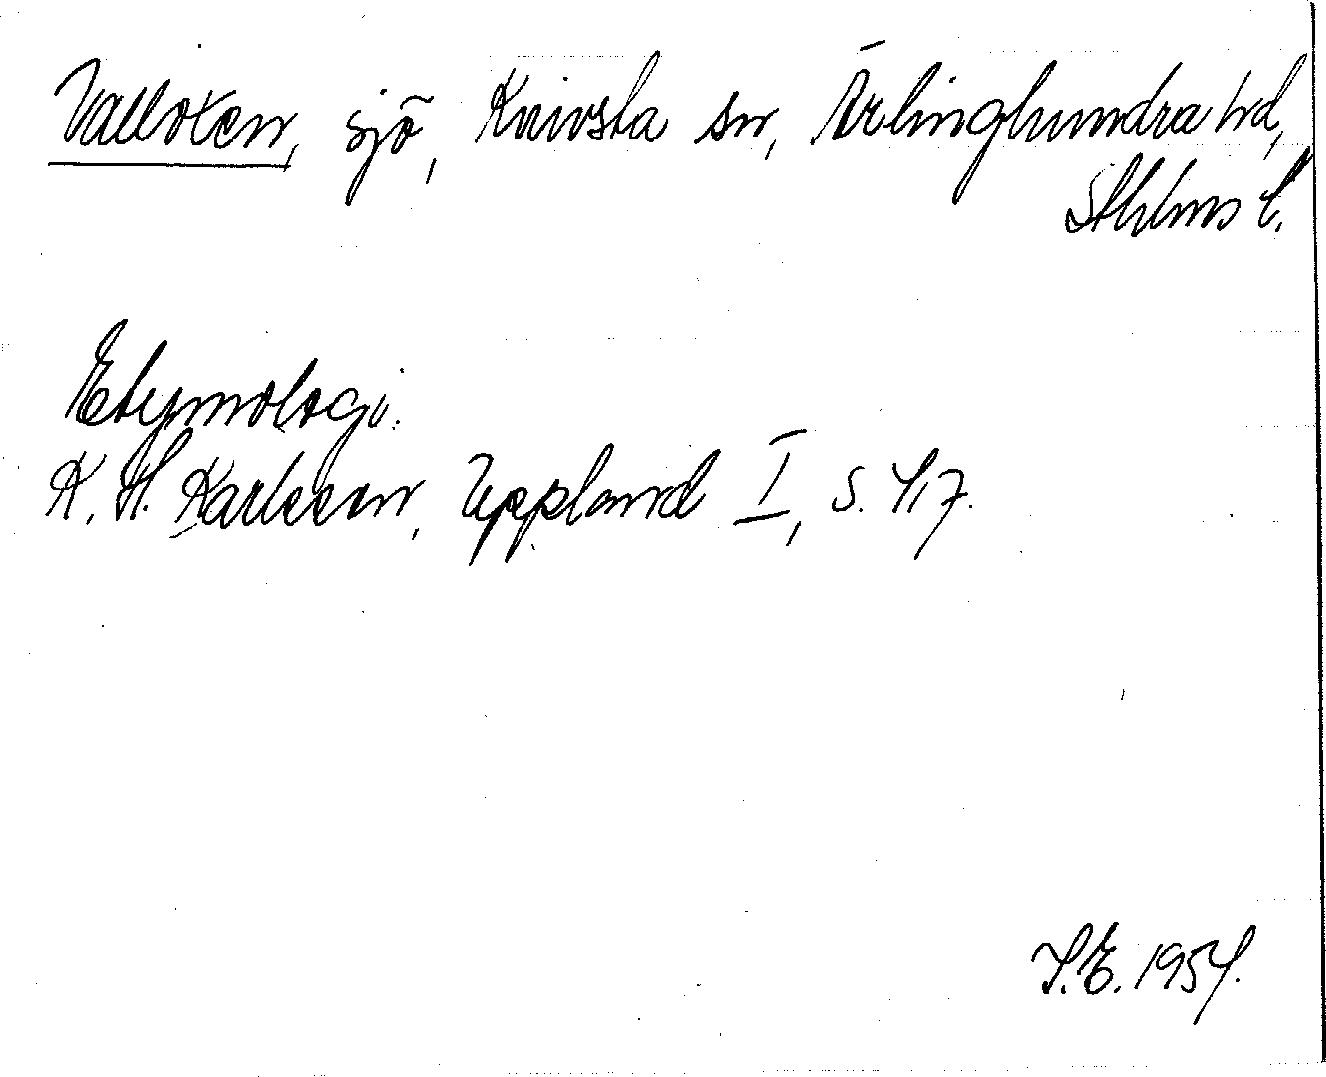 Valloxen, sjö, Knivsta sn, Ärlinghundra hd,
Sthlms l.
Etymologi.
K. H. Karlsson, Uppland I, s. 417.
S.E. 1954.